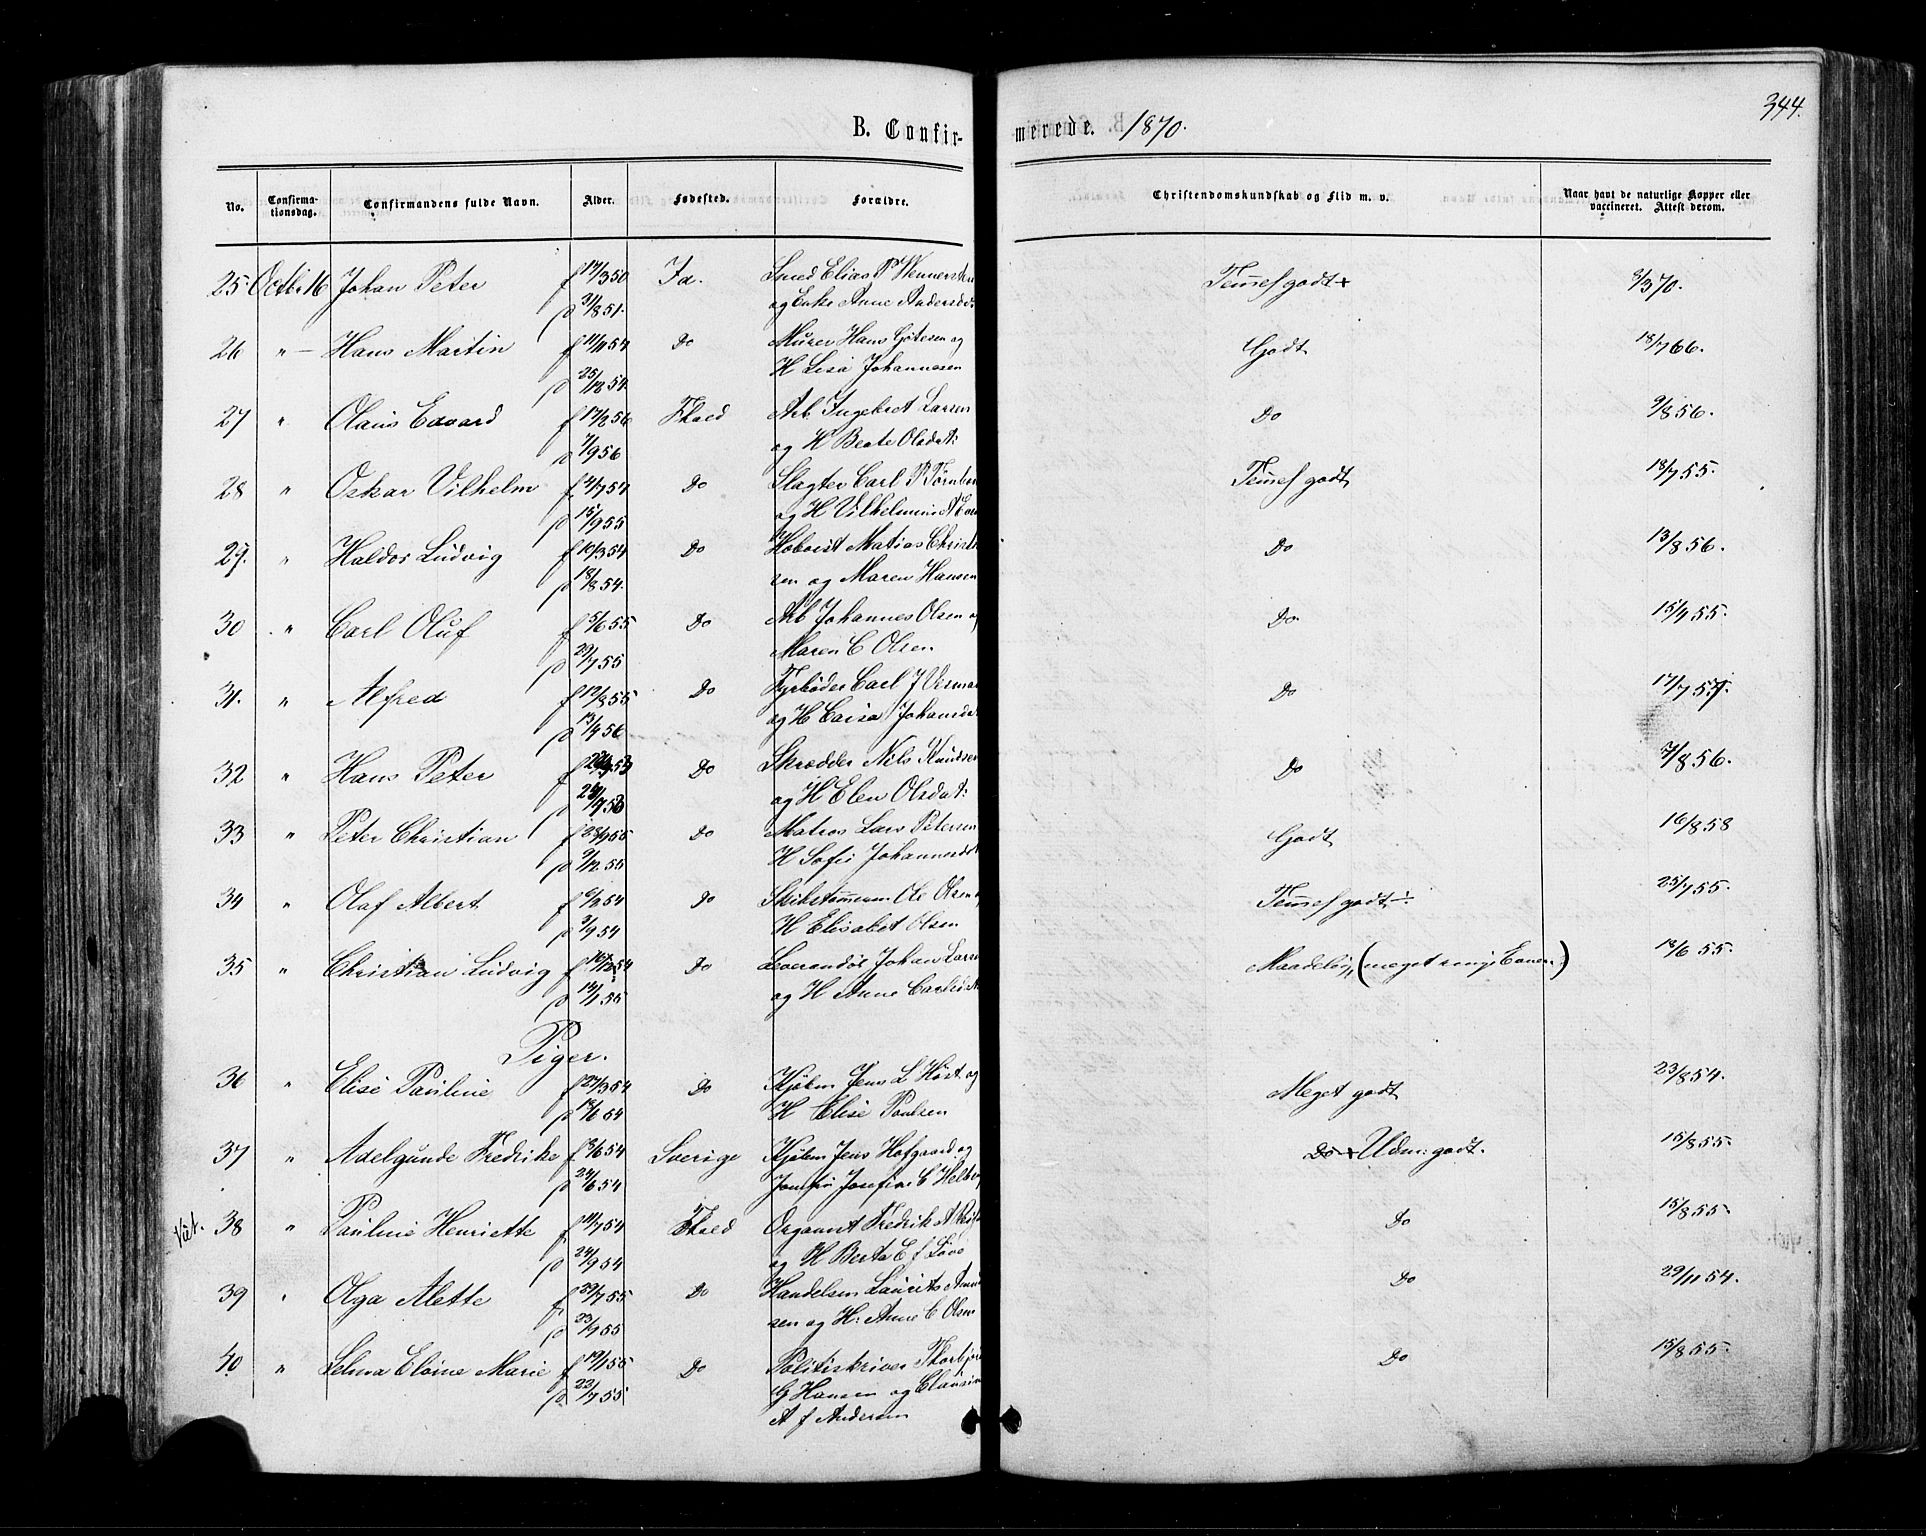 344.
B. Confirmerede. 1870.
No. Confirmationsdag. Confirmandens fulde Navn. Alder. Fødested. Forældre. Christendomskundskab og Flid m. v. Naar havt de naturlige Kopper eller vaccineret. Attest derom.
25 Octbr 16 Johan Peter f 17/3 50 Id. Smed Elias P Wenners Temel godt + 8/3 70.
d 31/8 51. og Enke Anne Andersdt
26 " — Hans Martin f 11/11 54 Do Murer Hans Gøtesen og Godt 18/7 66.
d 25/12 54. H Lisa Johannesen
27 " Olaus Edvard f 17/8 56 Fhald Arb. Ingebret Larsen Do 9/8 56.
d 7/9 56 og H Beate Olsdat:
28 " Oskar Vilhelm f 2/7 54 Do Slagter Carl P Temel godt 18/7 55.
d 15/9 55 og H Vilhelmine A
29. " Haldor Ludvig f 10/3 54 Do Hoboist Matias Christ Do 13/8 56.
d 18/8 54. sen og Maren Hansen
30 " Carl Oluf f 5/6 55 Do Arb Johannes Olsen og Do. 15/9 55.
d 29/7 55 Maren C Olsen
31. " Alfred f 12/8 55 Do Fyrbøder Carl J Verma Do 17/7 57.
d 13/4 56 og H Caisa Johansdat
32 " Hans Peter f Do Skrædder Nils Knudsen Do 7/8 56.
d og H Elen Olsdat:
33 " Peter Christian f 28/9 55 Do Matros Lars Petersen Godt 16/8 58
d 9/12 55 H Sofie Johannesdt
34 " Olaf Albert f 6/2 54 Do Skibstømmerm Ole Olsen og Temel godt ÷ 25/7 55.
d 3/9 54 H Elisabet Olsen
35 " Christian Ludvig f 16/12 54 Do Leverandør Johan Lars Maadelig, (meget ringe Evner.) 18/6 55.
d 14/1 55 og H Anne Carlsd
Piger.
36 " Elise Pauline f 27/3 54 Do Kjøbm Jens L Høst og Meget godt 23/8 54.
d 18/6 54 H Elise Paulsen
37 " Adelgunde Fredrike f 18/6 54 Sverige Kjøbm Jens Hofgaard og Do + Udm: godt. 15/8 55.
d 24/6 54 Jomfru Josefine C Helberg
Vidt. 38 " Pauline Henriette f 14/7 54 Fhald Organist Fredrik A Do 15/8 55.
d 24/9 54 og H Berta C f Løvo
39 " Olga Alette f 29/7 55 Do Handelsm Laurits Amund Do 29/11 54.
d 23/9 55 sen og H: Anne C Olsen
40 " Selma Elvine Marie f 19/1 55 Do Politiskriver Thorbjørn Do 15/8 55.
d 22/7 55 G Hansen og Clausine
A f Andersen